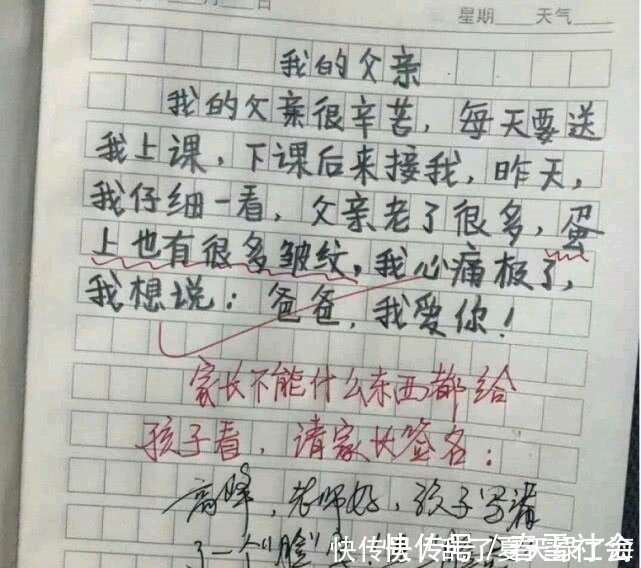 星期 天气
我的父亲
我的父亲很辛苦，每天要送
我上课，下课后来接我，昨天，
我仔细一看，父亲老了很多，蛋
上也有很多皱纹，我心痛极了，
我想说：爸爸，我爱你！
家长不能什么东西都给
孩子看，请家长签名：
高峰，老师好，孩子写错
了一个"脸"
快传号/春雷社会